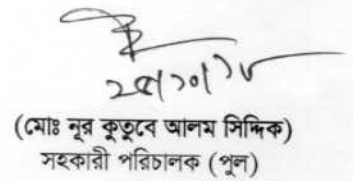 (মোঃ নূর কুতুবে আলম সিদ্দিক)
সহকারী পরিচালক (পুল)